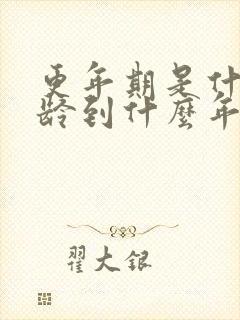 更年期是什
龄到什麼年
翟大银